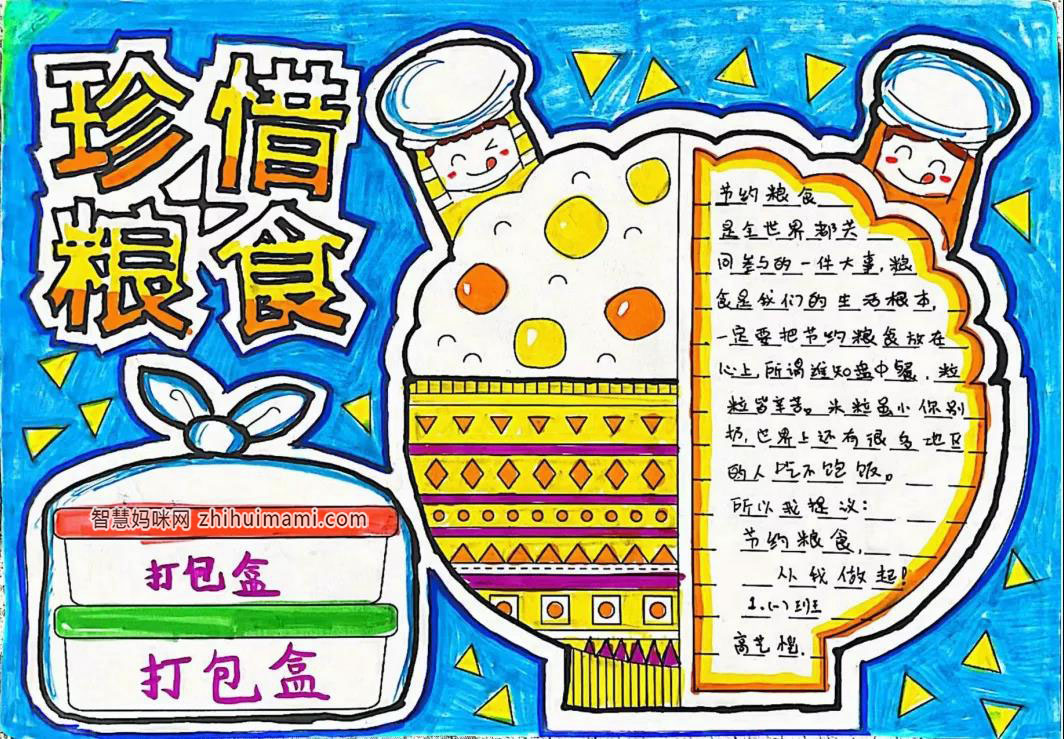 珍惜
粮食
节约粮食
是全世界都关
问参与的一件大事,粮
食是我们的生活根本,
一定要把节约粮食放在
心上,所谓谁知盘中餐,粒
粒皆辛苦。米粒虽小你别
扔,世界上还有很多地区
的人吃不饱饭。
所以我提议:
节约粮食,
从我做起!
1.(一)班
高艺恺.
智慧妈咪网 zhihuimami.com
打包盒
打包盒